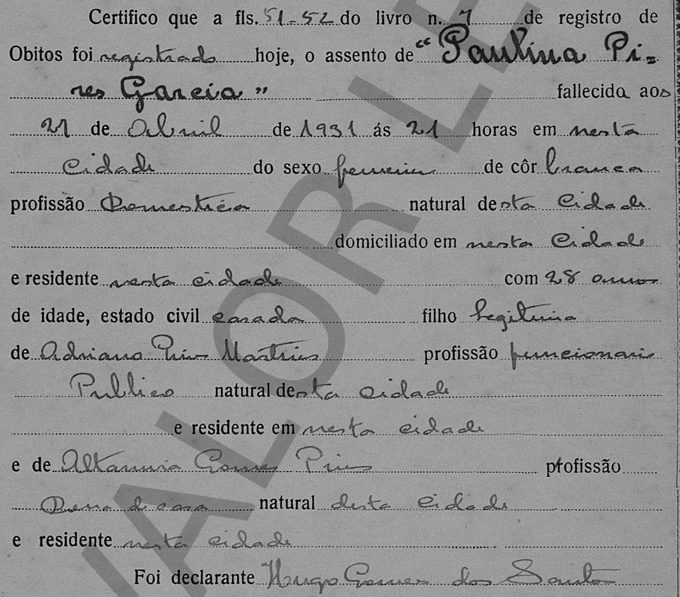 Certifico que a fls. 51-52 do livro n. 7 de registro de
Obitos foi registrado hoje, o assento de "Paulina Pi=
res Garcia" fallecida aos
21 de Abril de 1931 ás 21 horas em nesta
cidade do sexo femenino de côr branca
profissão Domestica natural desta cidade
domiciliado em nesta cidade
e residente nesta cidade com 28 annos
de idade, estado civil casada filho legitima
de Adriano Pires Martins profissão funcionario
Publico natural desta cidade
e residente em nesta cidade
e de Altamira Gomes Pires profissão
Dona de casa natural desta cidade
e residente nesta cidade
Foi declarante Hugo Gomes dos Santos
VALOR LE